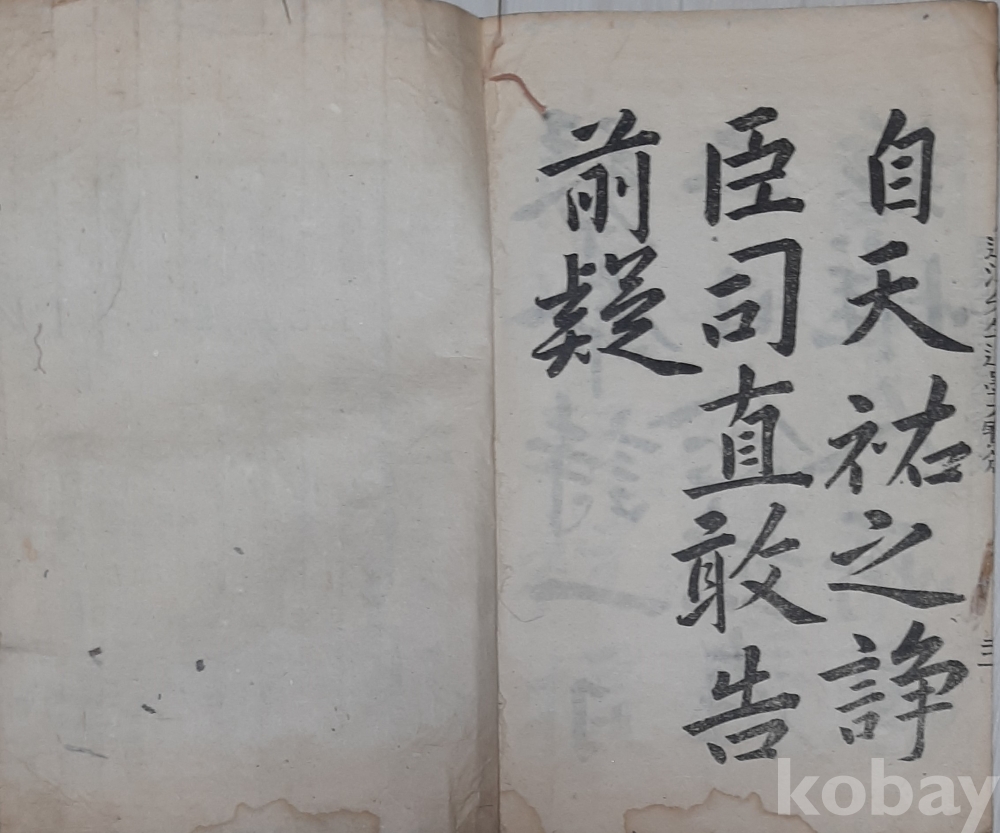 自天祐之諍
臣司直敢告
前疑
kobay